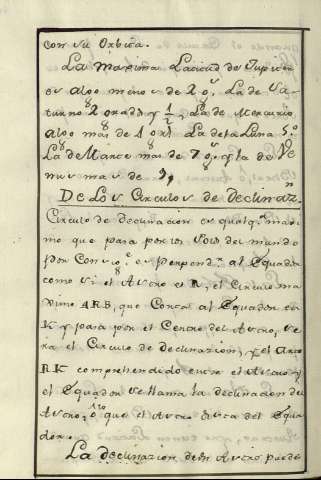 con su Orbita.
La maxima Latitud de Jupiter
es algo menos de 2 gs. La de Sa-
turno 2 grads y 1/2, La de Mercurio
algo mas de 6 gs. La de la Luna 5 gs.
La de Marte mas de 7 gs. y la de Ve
nus mas de 9,
De Los Circulos de Declinazn.
Circulo de declinacion es qualqr. maxi
mo que pasa por los Polos del mundo
perpendr. al Equador
como si el Astro es R, el Circulo ma
ximo ARB, que Corta al Equador en
K y pasa por el Centro del Astro, se
ra el Circulo de declinazion, y el arco
RK comprehendido entre el Astro y
el Equador se llama la declinacion del
Astro, o lo que el Astro dista del Equa
dor.
La declinazion de un Astro puede